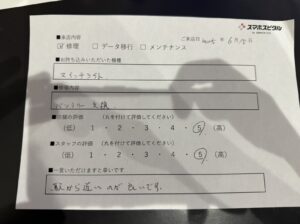 スマホスピタル
■来店内容
ご来店日 2025年6月15日
☑ 修理 □ データ移行 □ メンテナンス
■お持ち込みいただいた機種
スイッチライト
■修理内容
バッテリー交換
■店舗の評価 (丸を付けて評価してください)
(低) 1 ・ 2 ・ 3 ・ 4 ・ 5 (高)
■スタッフの評価 (丸を付けて評価してください)
(低) 1 ・ 2 ・ 3 ・ 4 ・ 5 (高)
■一言いただけますと幸いです
駅から近いのが良いです。